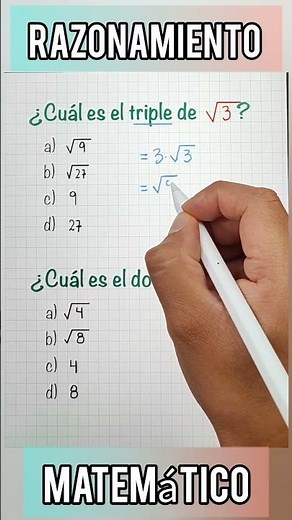 RAZONAMIENTO
¿Cuál es el triple de √3?
a) √9
= 3·√3
b) √27
= √
c) 9
d) 27
¿Cuál es el do
a) √4
b) √8
c) 4
d) 8
MATEMáTICO